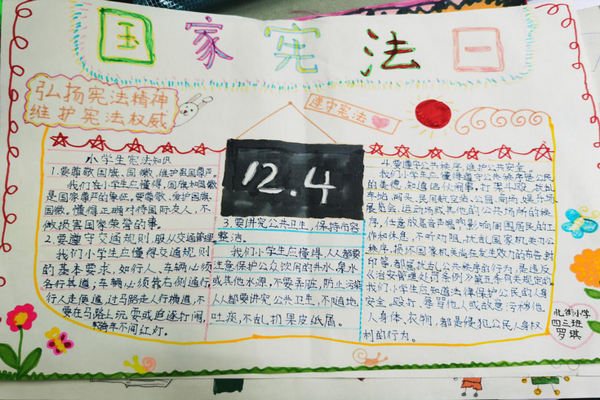 国家宪法日
弘扬宪法精神
维护宪法权威
遵守宪法
12.4
小学生宪法知识
1.要尊敬国旗、国徽,维护祖国尊严。
我们小学生应懂得,国旗和国徽
是国家尊严的象征。要尊敬、维护国旗、
国徽。懂得正确对待国际友人,不
做损害国家荣誉的事。
2.要遵守交通规则,服从交通管理
我们小学生应懂得交通规则
的基本要求,如行人、车辆必须
各行其道;车辆必须靠右侧通行;
行人走便道,过马路走人行横道,不
要在马路上玩耍或追逐打闹,
骑车不闯红灯。
3.要讲究公共卫生,保持内容
整洁。
我们小学生应懂得,人人都要
注意保护公众饮用的井水、泉水
或其他水源,不要弄脏,防止污染
人人都要讲究公共卫生,不随地
吐痰,不乱扔果皮纸屑。
4.要遵守公共秩序,维护公共安全。
我们小学生应懂得遵守公共秩序是公民
的美德,知道结伙闹事、打架斗殴、扰乱
车站、码头、民用航空站、公园、商场、娱乐场
展览会、运动场或其他的公共场所的秩
序,任意放高音喇叭影响周围居民的工
作和休息,不听劝阻,扰乱国家机关办公
秩序,损坏国家机关尚在发生效力的布告封
印等,都是扰乱公共秩序的行为,是违反
《治安管理处罚条例》分第五条有关规定的。
我们小学生应知道法律保护公民的人身
安全,殴打、辱骂他人或故意污损他
人身体、衣物,都是侵犯公民人身权
利的行为。
四三班
罗琪